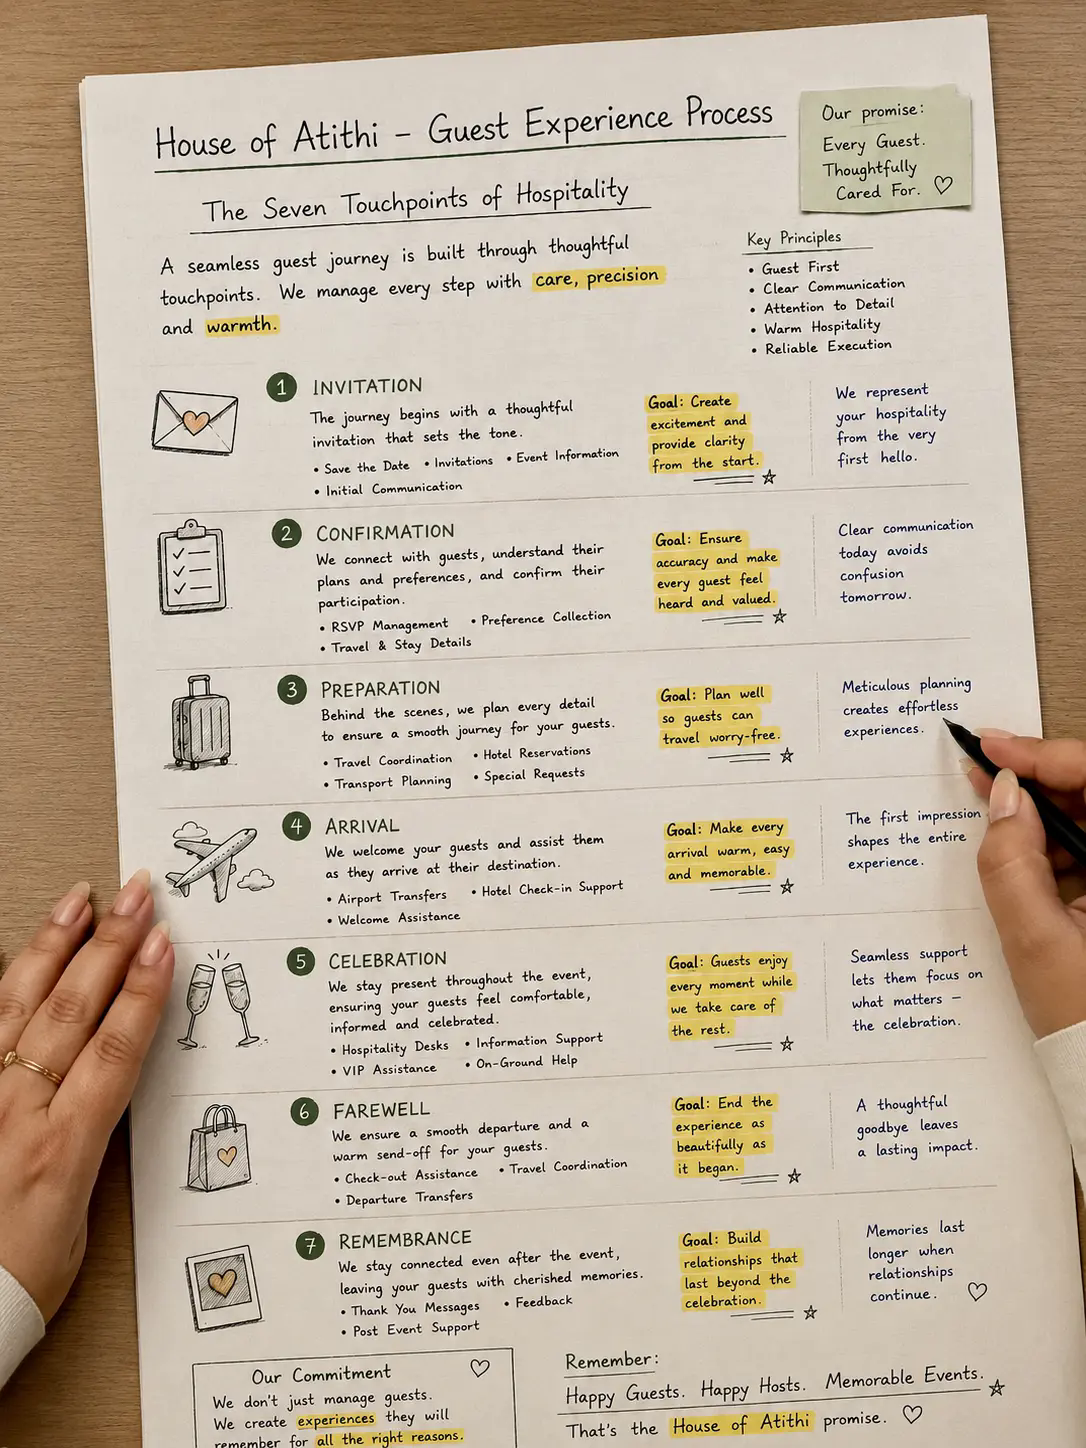 House of Atithi – Guest Experience Process
Our promise:
Every Guest.
Thoughtfully
Cared For. ♡
The Seven Touchpoints of Hospitality
A seamless guest journey is built through thoughtful
touchpoints. We manage every step with care, precision
and warmth.
Key Principles
• Guest First
• Clear Communication
• Attention to Detail
• Warm Hospitality
• Reliable Execution
1 INVITATION
The journey begins with a thoughtful
invitation that sets the tone.
• Save the Date • Invitations • Event Information
• Initial Communication
Goal: Create
excitement and
provide clarity
from the start.
We represent
your hospitality
from the very
first hello.
2 CONFIRMATION
We connect with guests, understand their
plans and preferences, and confirm their
participation.
• RSVP Management • Preference Collection
• Travel & Stay Details
Goal: Ensure
accuracy and make
every guest feel
heard and valued.
Clear communication
today avoids
confusion
tomorrow.
3 PREPARATION
Behind the scenes, we plan every detail
to ensure a smooth journey for your guests.
• Travel Coordination • Hotel Reservations
• Transport Planning • Special Requests
Goal: Plan well
so guests can
travel worry-free.
Meticulous planning
creates effortless
experiences.
4 ARRIVAL
We welcome your guests and assist them
as they arrive at their destination.
• Airport Transfers • Hotel Check-in Support
• Welcome Assistance
Goal: Make every
arrival warm, easy
and memorable.
The first impression
shapes the entire
experience.
5 CELEBRATION
We stay present throughout the event,
ensuring your guests feel comfortable,
informed and celebrated.
• Hospitality Desks • Information Support
• VIP Assistance • On-Ground Help
Goal: Guests enjoy
every moment while
we take care of
the rest.
Seamless support
lets them focus on
what matters –
the celebration.
6 FAREWELL
We ensure a smooth departure and a
warm send-off for your guests.
• Check-out Assistance • Travel Coordination
• Departure Transfers
Goal: End the
experience as
beautifully as
it began.
A thoughtful
goodbye leaves
a lasting impact.
7 REMEMBRANCE
We stay connected even after the event,
leaving your guests with cherished memories.
• Thank You Messages • Feedback
• Post Event Support
Goal: Build
relationships that
last beyond the
celebration.
Memories last
longer when
relationships
continue. ♡
Our Commitment ♡
We don't just manage guests.
We create experiences they will
remember for all the right reasons.
Remember:
Happy Guests. Happy Hosts. Memorable Events.
That's the House of Atithi promise. ♡